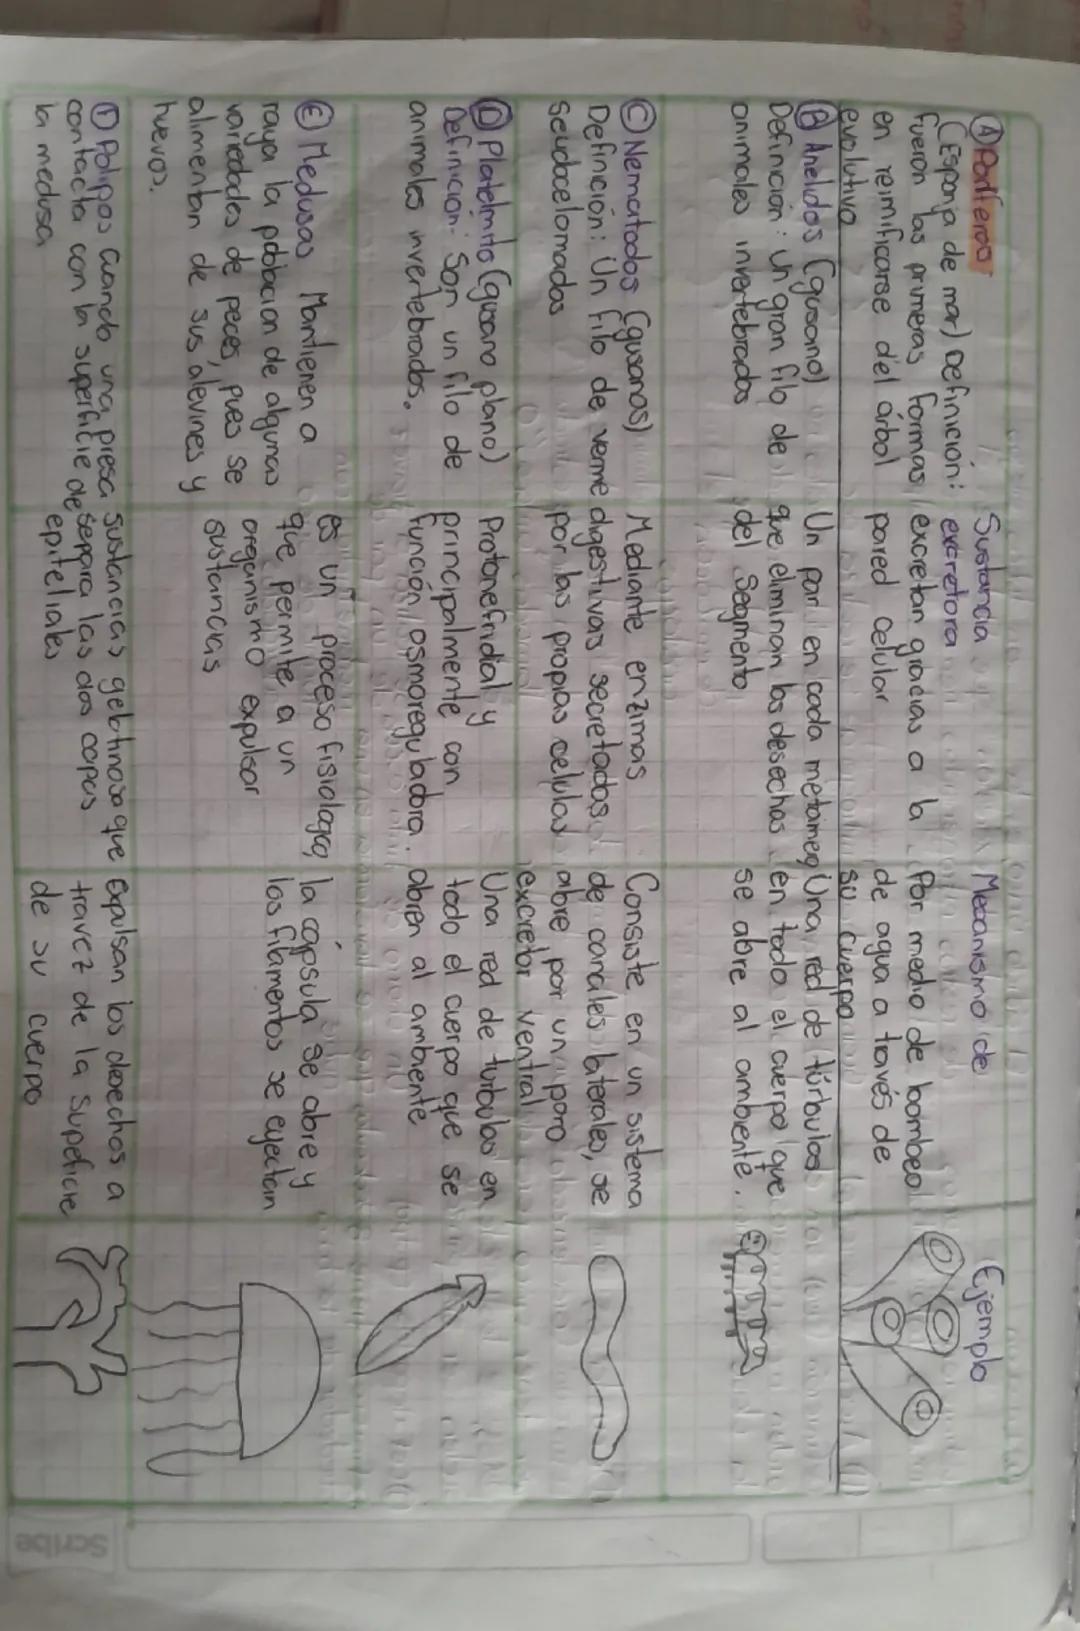 Sustancia excretora
Mecanismo de
Ejemplo
Ⓐ Poríferos
(Esponja de mar) Definición:
fueron las primeras formas
en reimificarse del árbol
evolutivo
excretan gracias a la
pared celular
Por medio de bombeo
de agua a través de
su cuerpo
Ⓑ Anelidos (gusano)
Definición: Un gran filo de
animales invertebrados
Un par en cada metámero
que eliminan los desechos
del Segmento
Una red de túrbulos
en todo el cuerpo que
se abre al ambiente.
Ⓒ Nematodos (gusanos)
Definición: Un filo de verme
Seudocelomados
Mediante enzimas
digestivas secretadas
por las propias celulas
Consiste en un sistema
de canales laterales, se
abre por un poro
excretor ventral
Ⓓ Platelminto (gusano plano)
Definición: Son un filo de
animales invertebrados.
Protonefridial y
principalmente con
función osmoreguladora.
Una red de turbulos en
todo el cuerpo que se
abren al ambiente
Ⓔ Medusas Mantienen a
raya la población de algunas
variedades de peces, pues se
alimentan de sus alevines y
huevos.
es un proceso fisiologico,
que permite a un
organismo expulsar
sustancias
la cápsula se abre y
los filamentos se eyectan
Ⓕ Polipos Cuando una presa
contacta con la superficie de
la medusa
sustancias gelatinosa que
separa las dos capas
epiteliales
Expulsan los desechos a
travez de la Superficie
de su cuerpo
Scribe